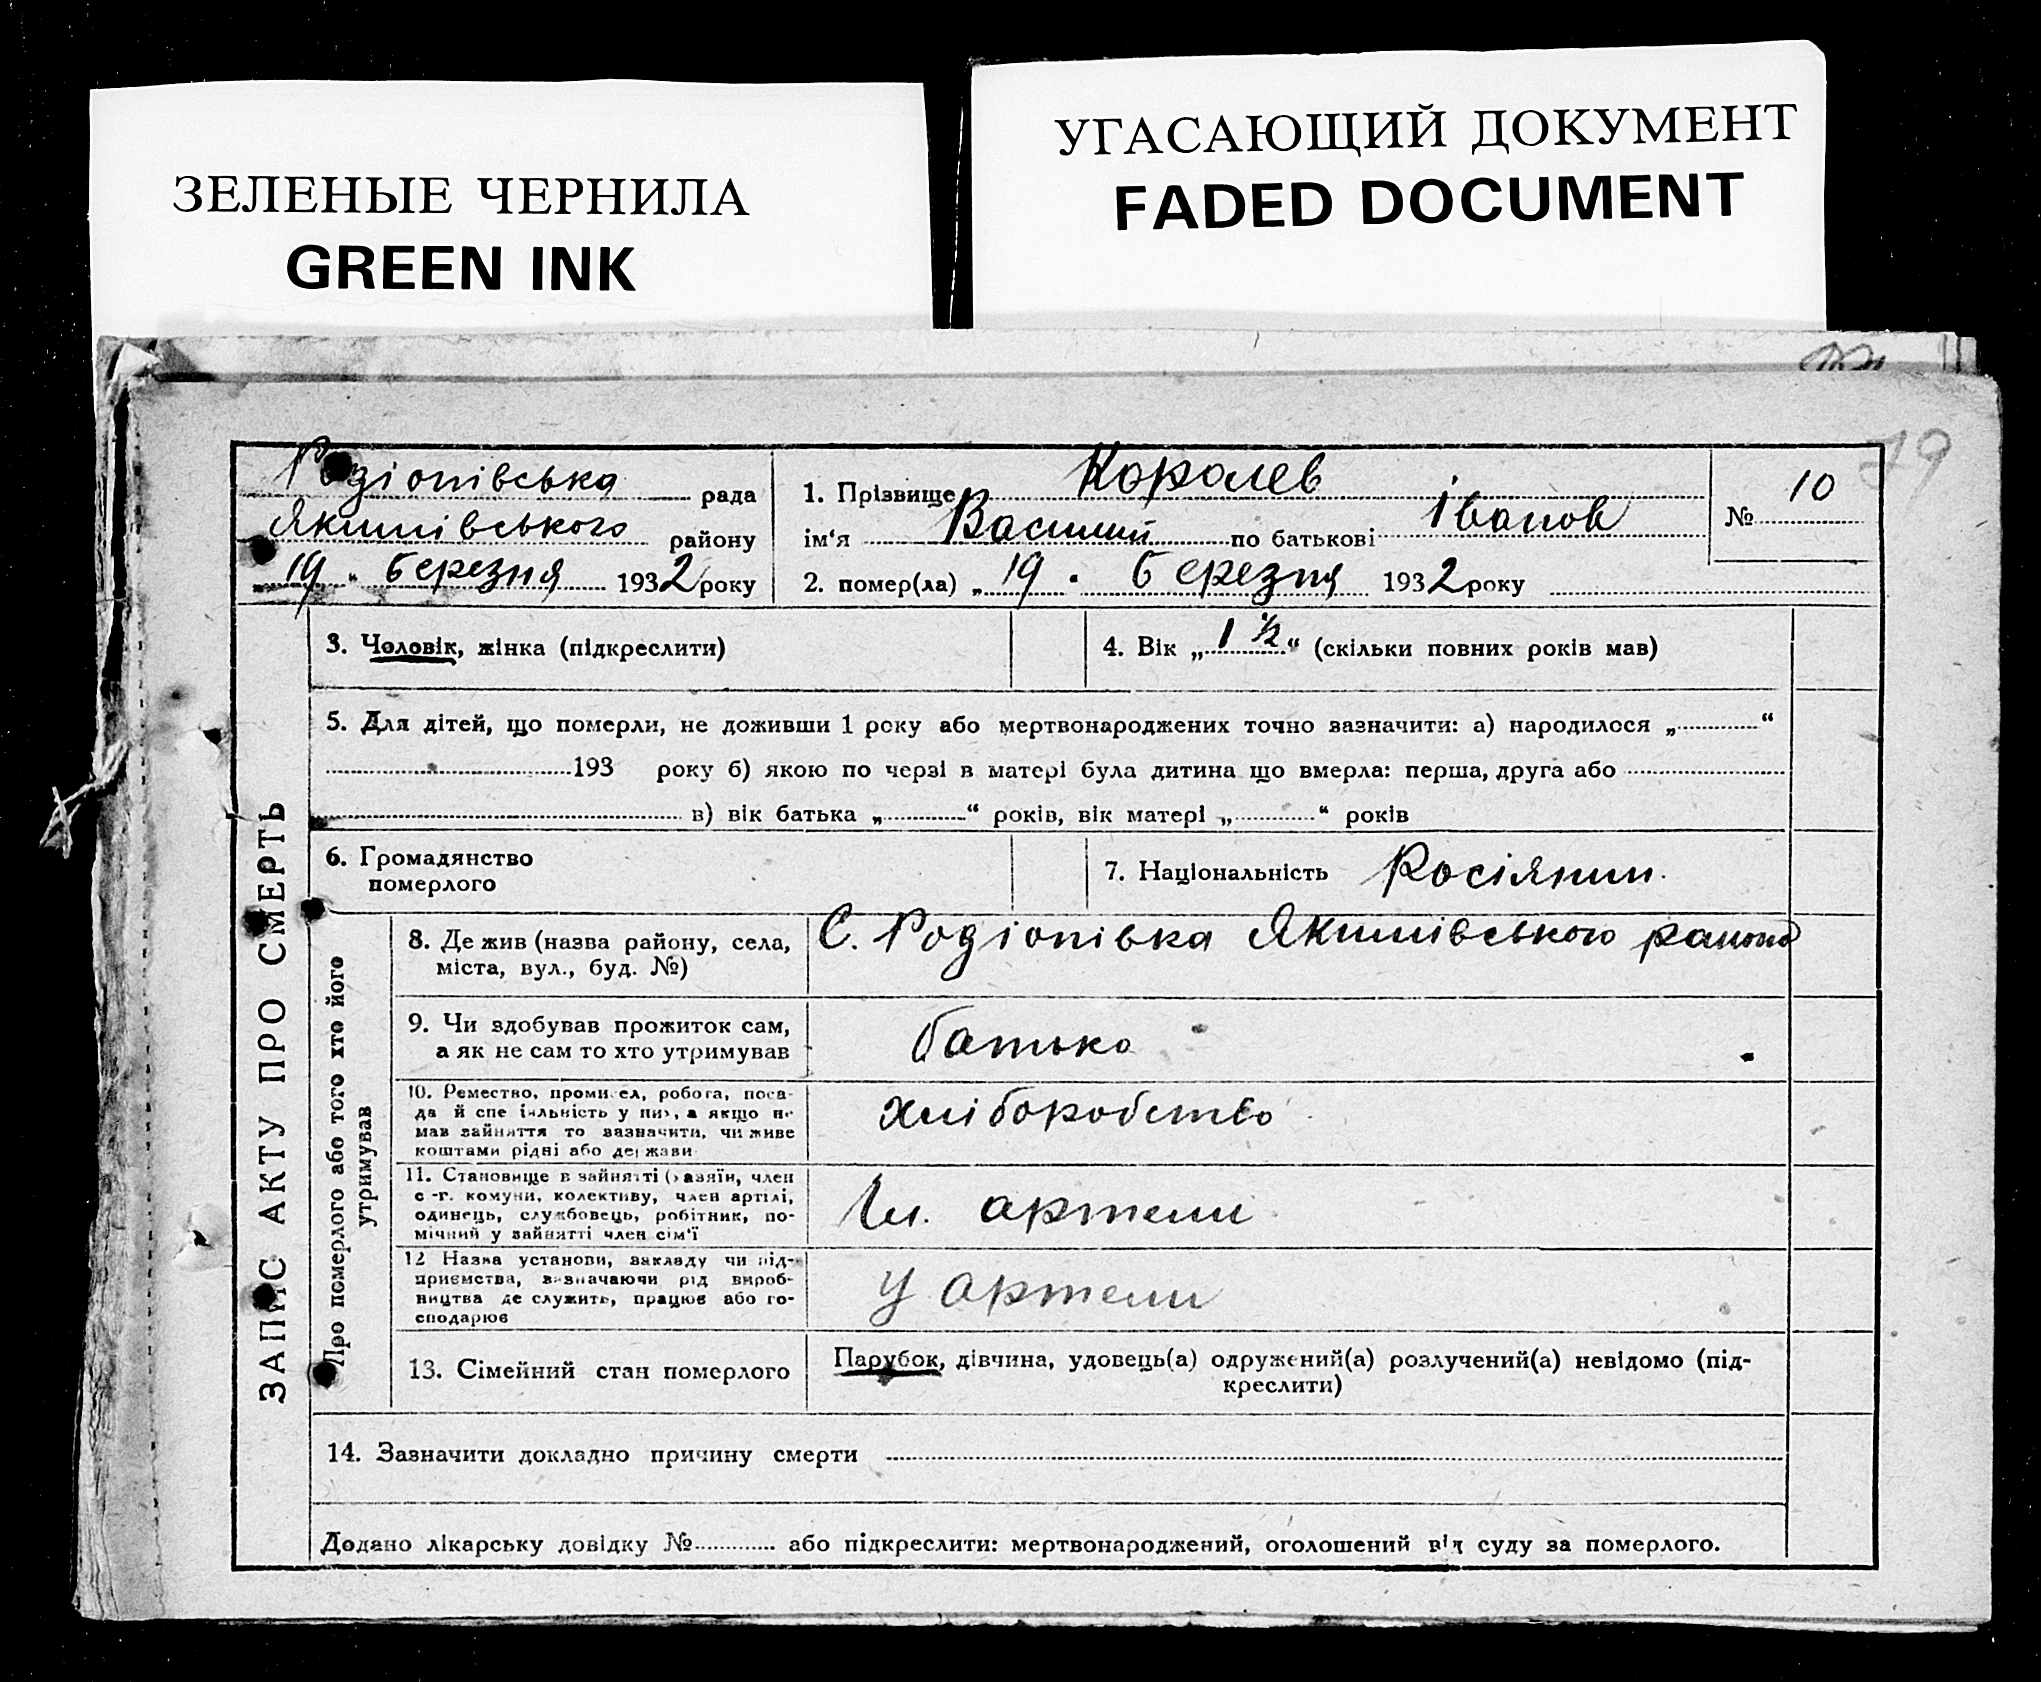 ЗЕЛЕНЫЕ ЧЕРНИЛА
GREEN INK
УГАСАЮЩИЙ ДОКУМЕНТ
FADED DOCUMENT
19
Родіонівська рада
Якимівського району
„19“ березня 1932 року
1. Прізвище Королев
ім‘я Василий по батькові Іванов
2. помер(ла) „19“ березня 1932 року
№ 10
ЗАПИС АКТУ ПРО СМЕРТЬ
3. Чоловік, жінка (підкреслити)
4. Вік „1 ½“ (скільки повних років мав)
5. Для дітей, що померли, не доживши 1 року або мертвонароджених точно зазначити: а) народилося „ “
193 року б) якою по черзі в матері була дитина що вмерла: перша, друга або
в) вік батька „ “ років, вік матері „ “ років
6. Громадянство
померлого
7. Національність Росіянин.
Про померлого або того хто його
утримував
8. Де жив (назва району, села,
міста, вул., буд. №)
С. Родіонівка Якимівського района
9. Чи здобував прожиток сам,
а як не сам то хто утримував
батько
10. Ремество, промисел, робота, поса-
да й спеціяльність у них, а якщо не
мав зайняття то зазначити, чи живе
коштами рідні або держави
хліборобство
11. Становище в зайнятті (хазяїн, член
с.-г. комуни, колективу, член артілі,
одинець, службовець, робітник, по-
мічний у зайнятті член сім‘ї
Чл. артели
12 Назва установи, закладу чи під-
приємства, визначаючи рід вироб-
ництва де служить, працює або го-
сподарює
У артели
13. Сімейний стан померлого
Парубок, дівчина, удовець(а) одружений(а) розлучений(а) невідомо (під-
креслити)
14. Зазначити докладно причину смерти
Додано лікарську довідку № або підкреслити: мертвонароджений, оголошений від суду за померлого.